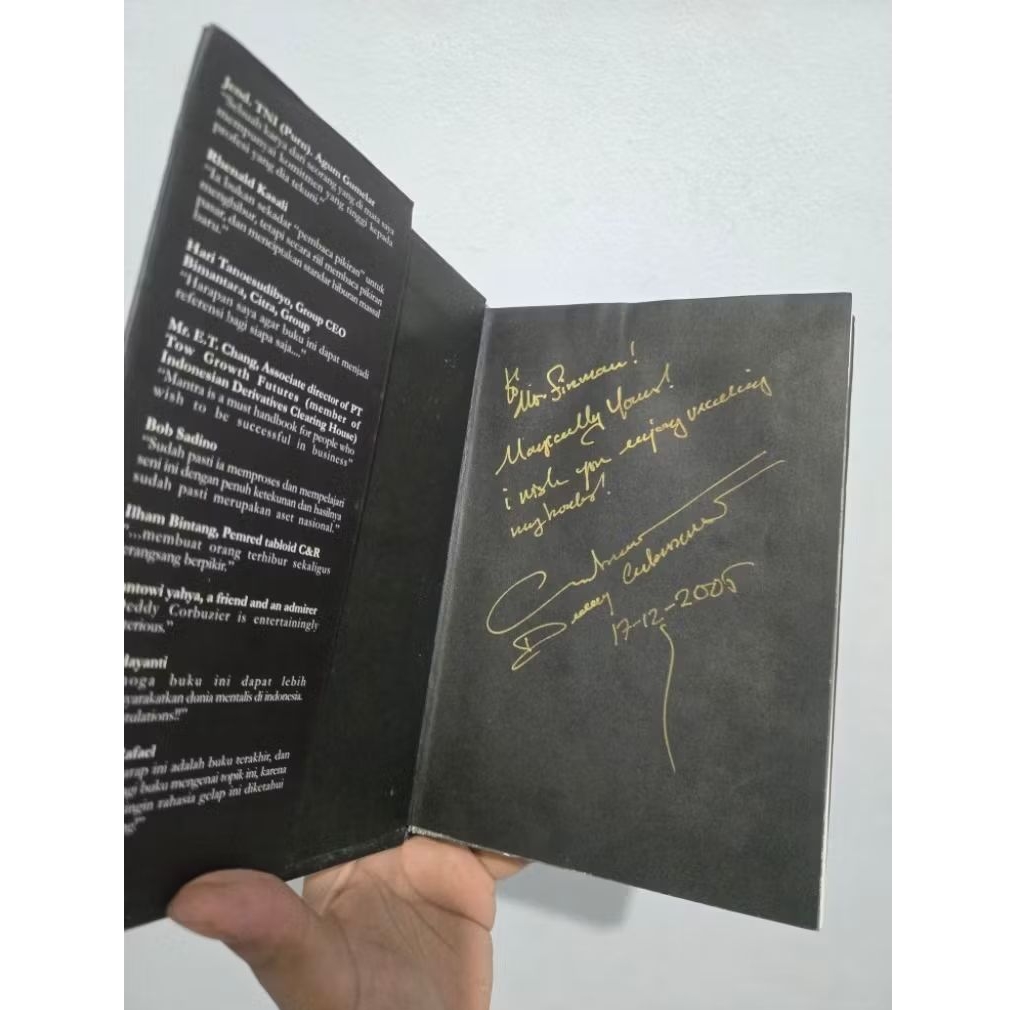 Jend. TNI (Purn). Agum Gumelar
"Sebuah karya dari seorang yang di mata saya
mempunyai komitmen yang tinggi kepada
profesi yang dia tekuni."
Rhenald Kasali
"Ia bukan sekadar "pembaca pikiran" untuk
menghibur, tetapi secara riil membaca pikiran
pasar, dan menciptakan standar hiburan massal
baru."
Hari Tanoesudibyo, Group CEO
Bimantara, Citra, Group
"Harapan saya agar buku ini dapat menjadi
referensi bagi siapa saja...."
Mr. E.T. Chang, Associate director of PT
Tow Growth Futures (member of
Indonesian Derivatives Clearing House)
"Mantra is a must handbook for people who
wish to be successful in business"
Bob Sadino
"Sudah pasti ia memproses dan mempelajari
seni ini dengan penuh ketekunan dan hasilnya
sudah pasti merupakan aset nasional."
Ilham Bintang, Pemred tabloid C&R
"...membuat orang terhibur sekaligus
erangsang berpikir."
ntowi yahya, a friend and an admirer
eddy Corbuzier is entertainingly
erious."
dayanti
oga buku ini dapat lebih
yarakatkan dunia mentalis di indonesia.
tulations!!"
afael
arap ini adalah buku terakhir, dan
gi buku mengenai topik ini, karena
ingin rahasia gelap ini diketahui
to
Mr. Firman!
Magically Yours!
i wish you enjoy
my book!
Deddy Corbuzier
17-12-2005